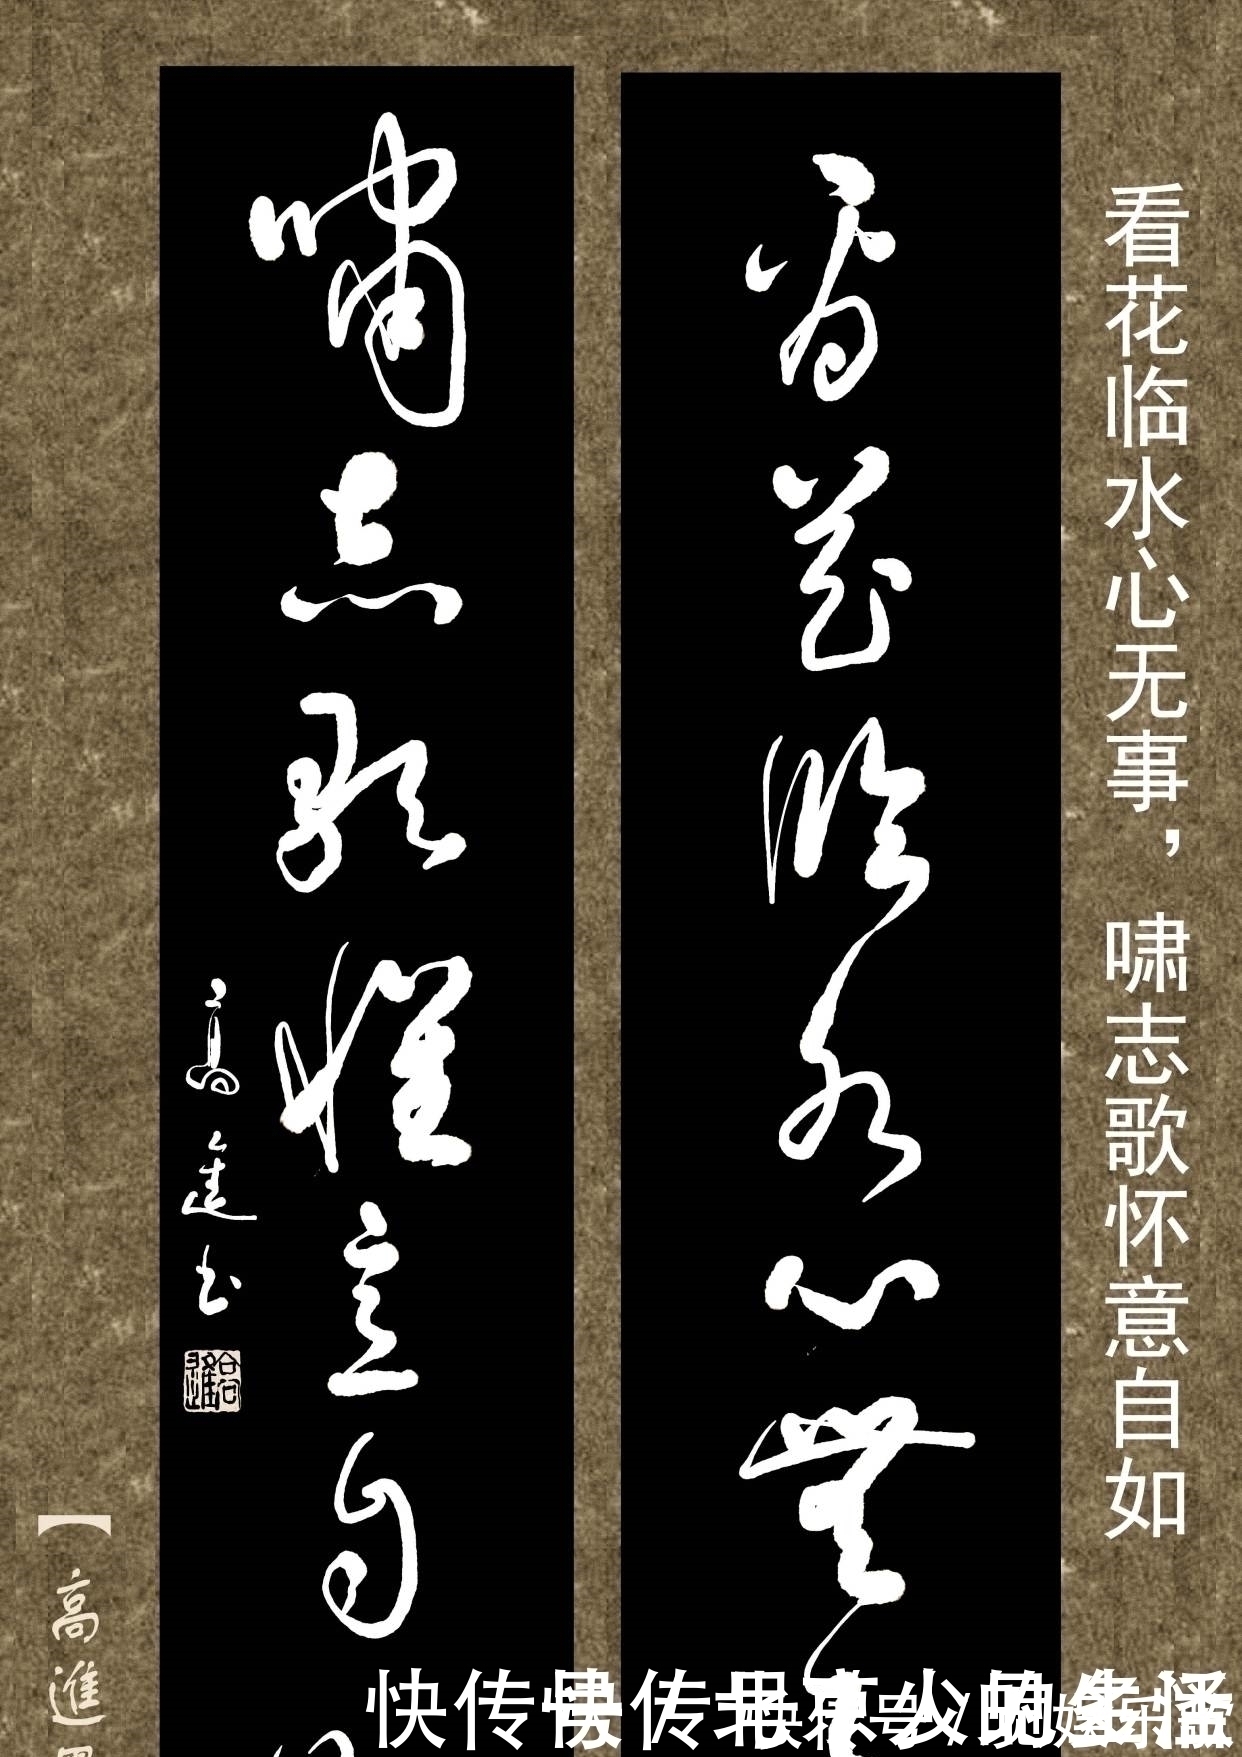 看花临水心无事，啸志歌怀意自如
看花臨水心無事
嘯志歌懷意自
高進书
【高進
快传号